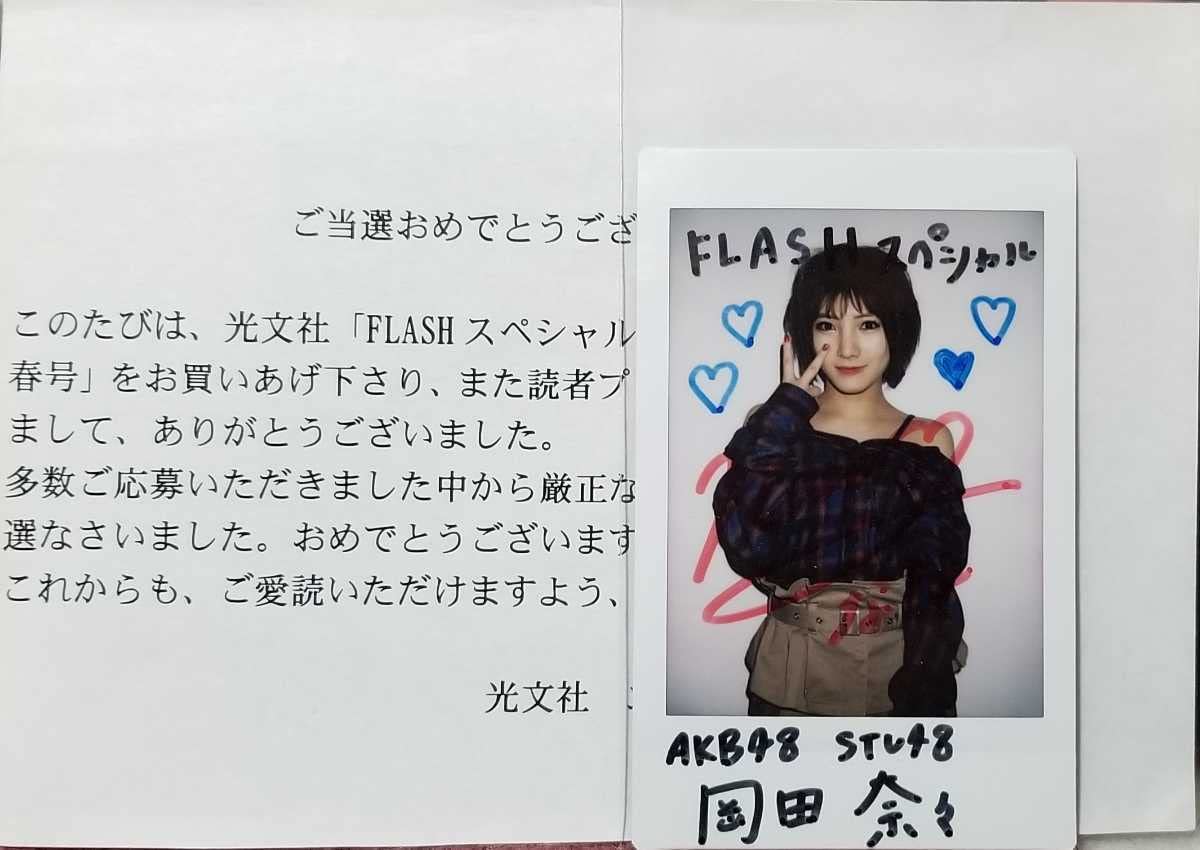 ご当選おめでとうござ
このたびは、光文社「FLASHスペシャル
春号」をお買いあげ下さり、また読者プ
まして、ありがとうございました。
多数ご応募いただきました中から厳正な
選なさいました。おめでとうございます
これからも、ご愛読いただけますよう、
光文社
FLASH スペシャル
AKB48 STU48
岡田 奈々